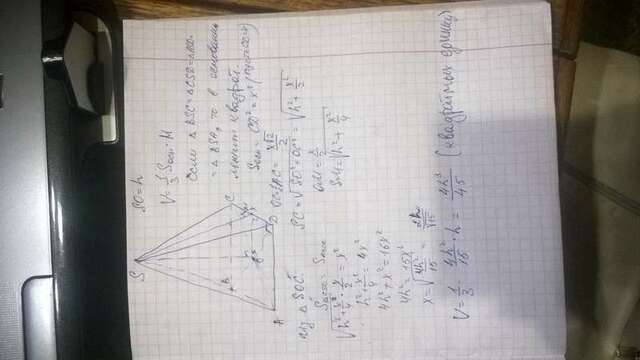 SO = h
V = 1/3 Sосн · H
Если △BSC = △CSD = △ASB =
= △DSA, то в основании
лежит квадрат.
Sосн = CD² = x² (пусть CD = x)
S
B
C
A
D
OC = 1/2 AC = x√2/2
SC = √(SO² + OC²) = √(h² + x²/2)
OM = x/2
SM = √(h² + x²/4)
из △SOC:
√(h² + x²/4) · x/2 = x²
h² + x²/4 = 4x²
4h² + x² = 16x²
4h² = 15x²
x = √(4h²/15) = 2h/√15
V = 1/3 · 4h²/15 · h = 4h³/45 (квадратных единиц)